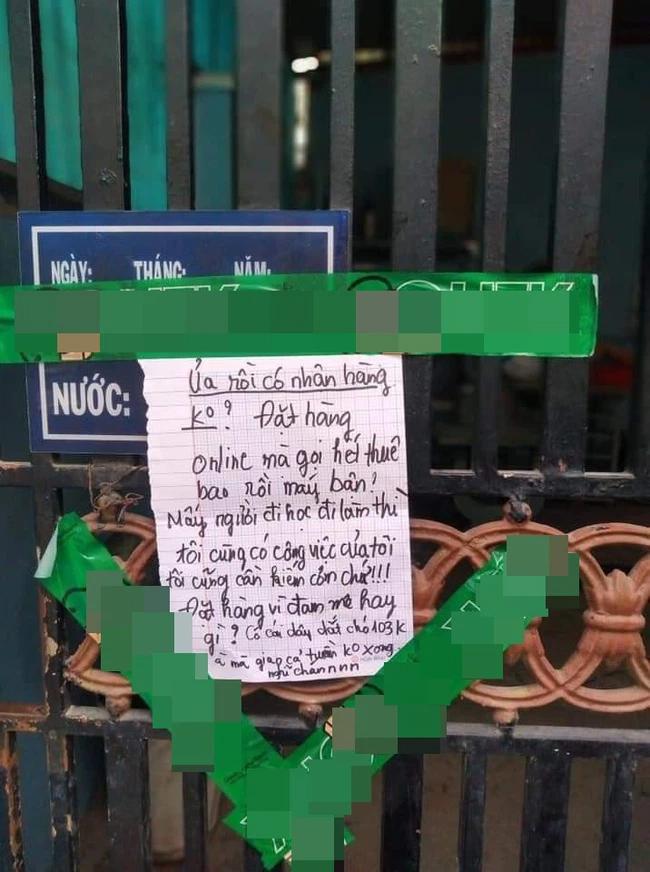 NGÀY: THÁNG: NĂM:
NƯỚC:
Ủa rồi có nhân hàng
ko? Đặt hàng
online mà gọi hết thuê
bao rồi mấy bân!
Mấy người đi học đi làm thì
tôi cũng có công việc của tôi
tôi cũng cần kiếm cơn chứ!!!
Đặt hàng vì đam mê hay
gì? Có cái dây dắt chó 103K
à mà giao cả tuần ko xong
nghĩ chánnnn